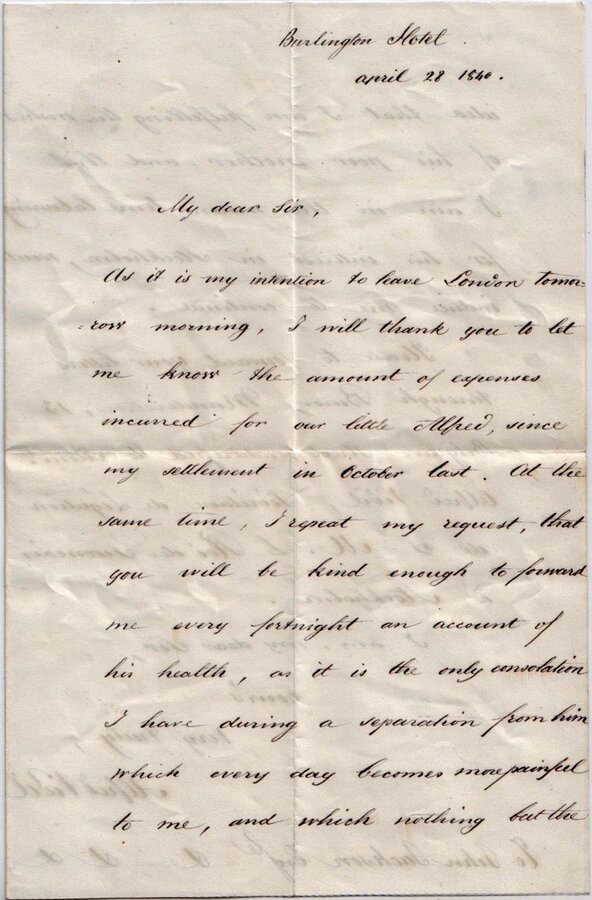 Burlington Hotel.
april 28 1840.
My dear Sir,
As it is my intention to leave London tomor-
:row morning, I will thank you to let
me know the amount of expenses
incurred for our little Alfred, since
my settlement in October last. At the
same time, I repeat my request, that
you will be kind enough to forward
me every fortnight an account of
his health, as it is the only consolation
I have during a separation from him
which every day becomes more painful
to me, and which nothing but the